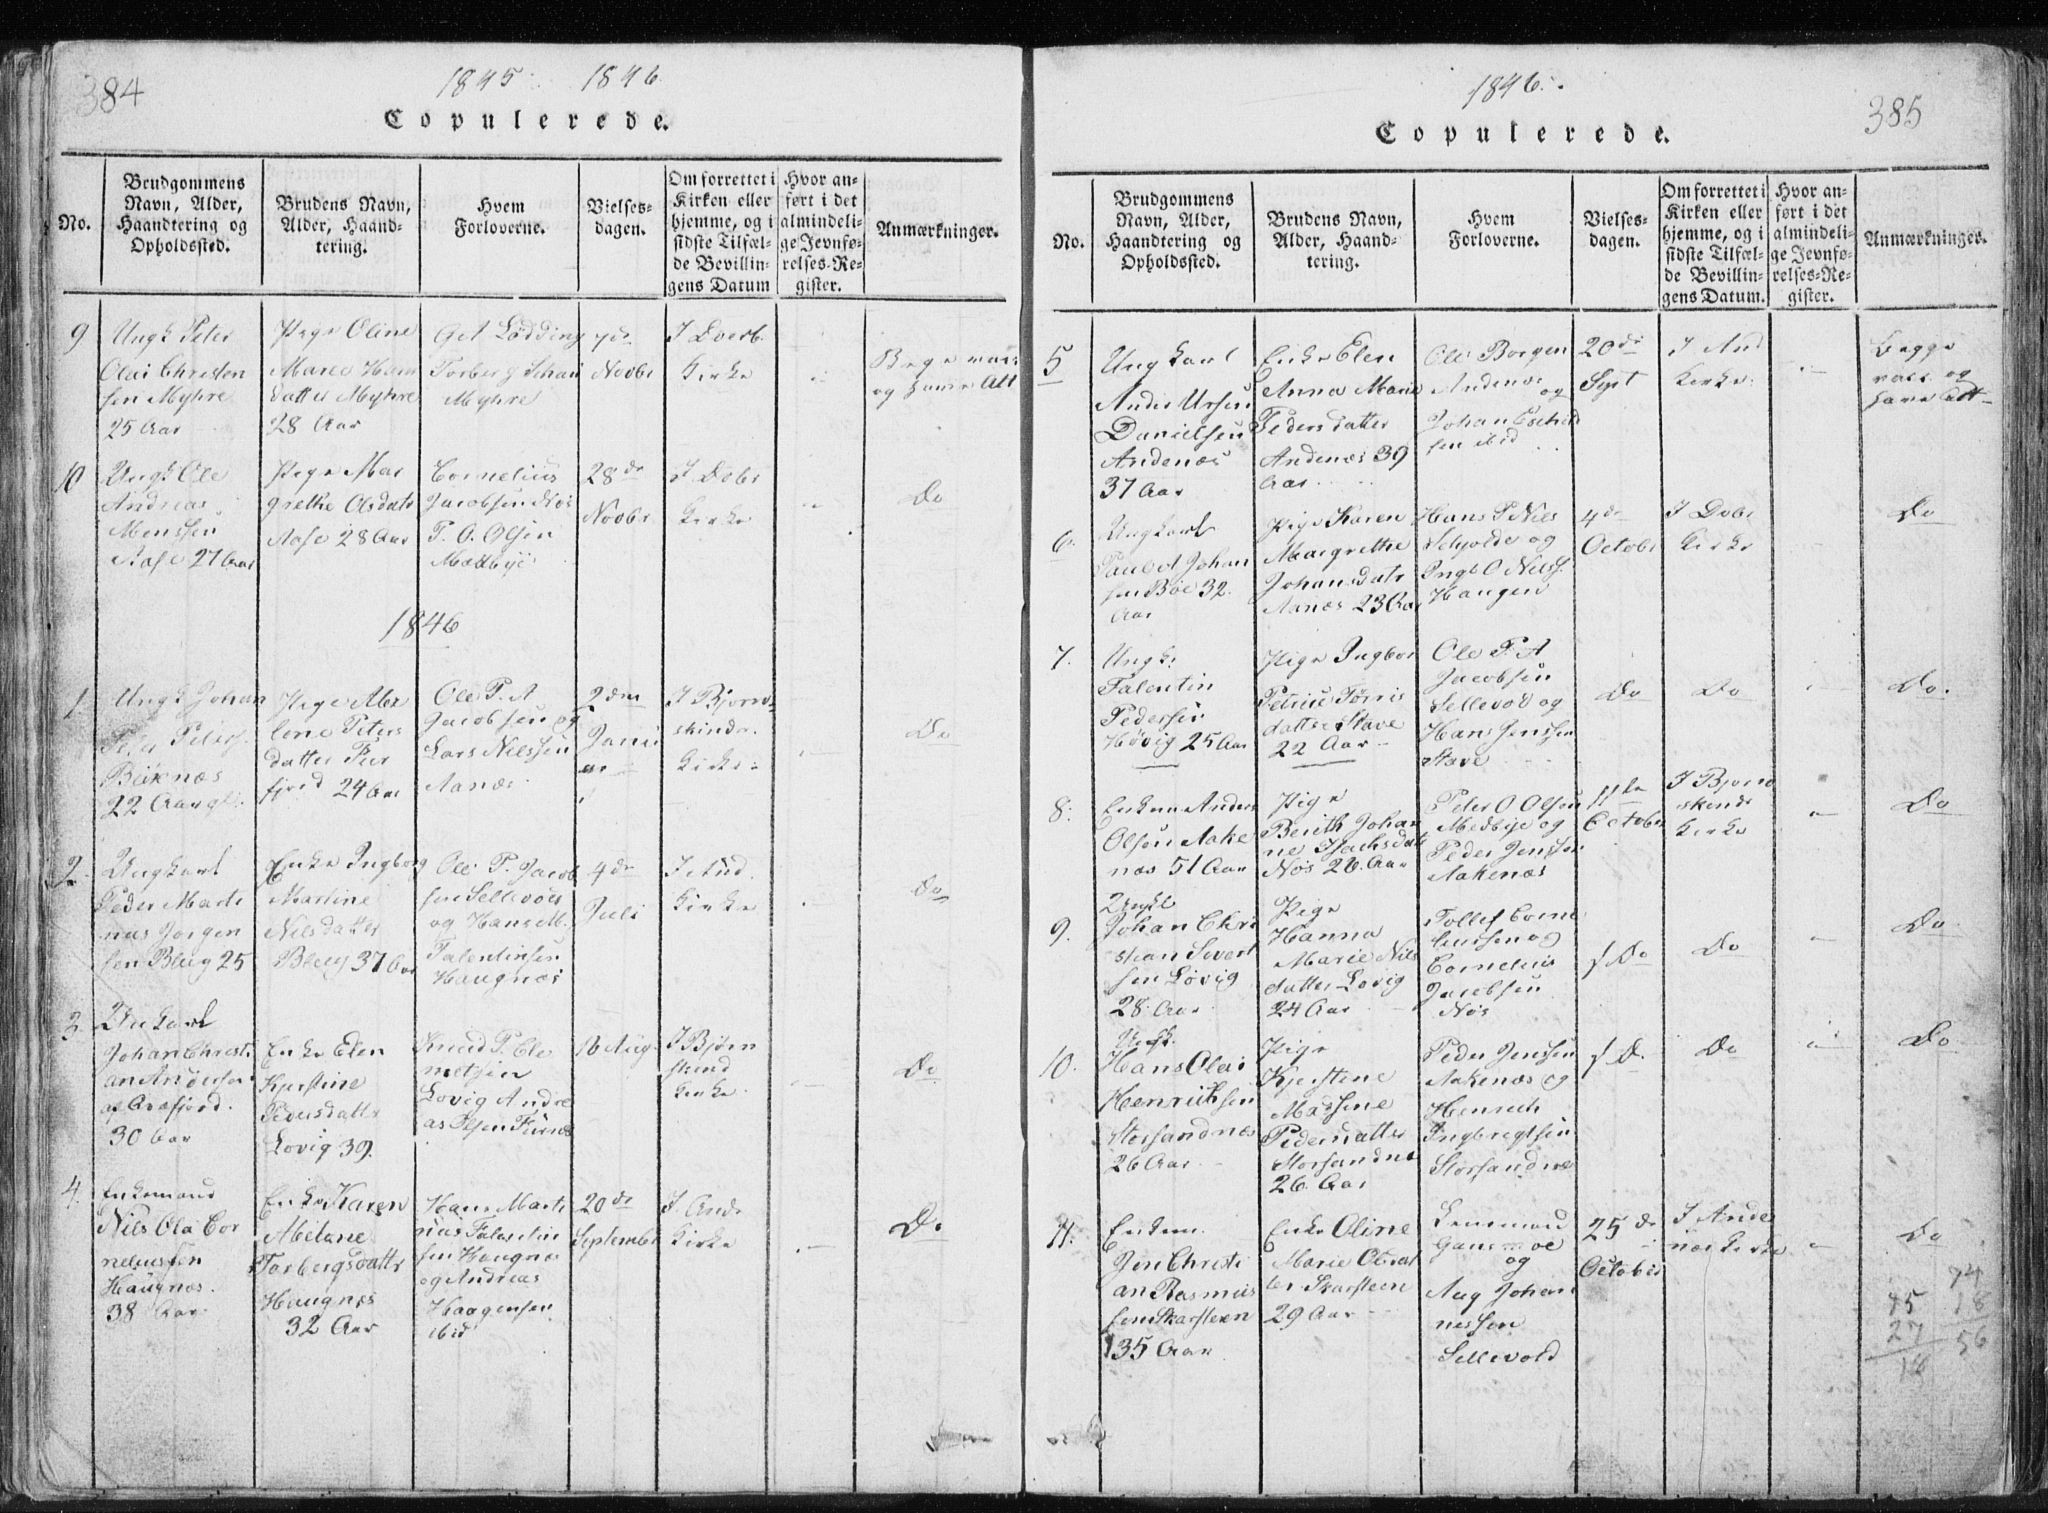 384
1845. 1846.
Copulerede.
No.
Brudgommens Navn, Alder, Haandtering og Opholdssted.
Brudens Navn, Alder, Haandtering.
Hvem Forloverne.
Vielsesdagen.
Om forrettet i Kirken eller hjemme, og i sidste Tilfælde Bevillingens Datum
Hvor anført i det almindelige Jevnførelses-Register.
Anmærkninger.
9
Ungk Peter
Olai Christen
sen Myhre
25 Aar
Pige Oline
Maren
datter Myhre
28 Aar
Lødding
Torberg
Myhre
Novbr
I Dverb.
Kirke
og have Att
10
Ungk Ole
Andreas
Monssen
Aase 27 Aar
Pige Mar
grethe Olsdatr
Aase 28 Aar
Cornelius
Jacobsen Nøs
P. O. Olsen
Medbye
28de
Novbr
I Dvbr
Kirke
Do
1846
1
Ungk Johan
Peter Peters.
Biiknæs
22 Aar
Pige Alex
Peters
datter
fjord 24 Aar
Ole P. A
Jacobsen og
Lars Nilssen
Aanæs
2den
Janu
ar
I Bjørn
skinds
Kirke
Do
2.
Ungkarl
Peder Marti
nus Jørgen
sen Bleig 25
Enke Ingborg
Martine
Nilsdatter
Bleig 37 Aar
Ole P. Jacob
sen Sellevold
og Hans M.
Falentinsen
Haugnæs
4de
Juli
I And.
Kirke
Do
3.
Ungkarl
Johan Christi
an Andersen
af
30 Aar
Enke Elen
Kjerstine
Pedersdattr
Lovig 39.
Knud P. Cle
metsen
Lovig Andre
as
16 Aug.
I Bjørn
skind
Kirke
Do
4.
Enkemand
Nils Ola Cor
neliussen
Haugnæs
38 Aar
Enke Karen
Torbergsdattr
Haugnæs
32 Aar
Hans Marti
nus Falentin
sen Haugnæs
og Andreas
Haagensen
ibid
20de
September
I Ands
Kirke
Do
1846.
385
Copulerede.
No.
Brudgommens Navn, Alder, Haandtering og Opholdssted.
Brudens Navn, Alder, Haandtering.
Hvem Forloverne.
Vielsesdagen.
Om forrettet i Kirken eller hjemme, og i sidste Tilfælde Bevillingens Datum.
Hvor anført i det almindelige Jevnførelses-Register.
Anmærkninger.
5
Ungkarl
Danielsen
Andenæs
37 Aar
Enke Elen
Anna Marie
Pedersdatter
Andenæs 39
Aar
Ole Borgen
Andenæs og
Johan Eschild
sen ibid
20de
Sept
I And
Kirke.
begge
vacc og
have Att
6.
Ungkarl
Paul A Johan
sen Bøe 32.
Aar
Pige Karen
Margrethe
Johansdatr
Aanæs 23 Aar
Hans P Nils
og
Ingb O Nilss
Haugen
4de
October
I Dvbr
Kirke
Do
7.
Ungk:
Falentin
Pedersen
Høvig 25 Aar
Pige Ingbor
Petrine Tørris
datter Stave
22 Aar
Ole P. A
Jacobsen
Sellevold og
Hans Jenssen
Stave
Do
Do
Do.
8:
Enkem Anders
Olsen Aake
næs 51 Aar
Pige
Berith Johan
ne Isachsdatr
Nøs 26 Aar
Peter O Olsen
Medbye og
Peder Jenssen
Aakenæs
11te
October
I Bjørn
skinds
Kirke
Do
9.
Ungkl
Johan Chri
stian Sivert
sen Lovig
28. Aar
Pige
Hanna
Marie Nils
datter Lovig
24 Aar
Tollef Corne
liussen og
Cornelius
Jacobsen
Nøs
Do
Do
Do
10.
Ungk.
Hans Olai
Henrichsen
Storsandnæs
26 Aar
Pige
Kjerstine
Massine
Pedersdatter
Storsandnæ
26. Aar
Peder Jenssen
Aakenæs og
Henrich
Ingbregtsen
Storsandnæs
Do.
Do
Do
11.
Enkem.
Jens Christi
an Rasmus
sen Skarsteen
35 Aar
Enke Oline
Marie Olsdat
ter Skarsteen
29 Aar
og
Aug Johan
nessen
Sellevold
25de
October
I Ande
næs Kirke
Do
45
27
18
74
18
56